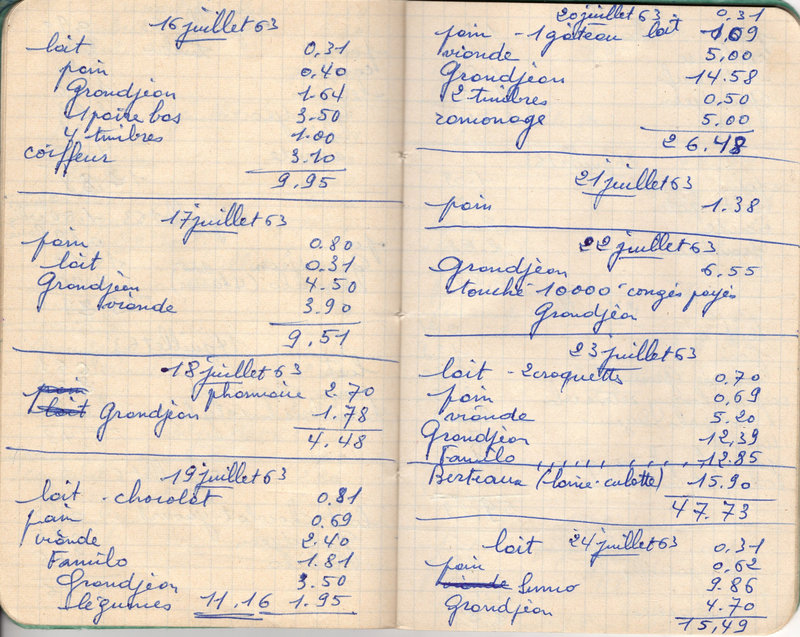 16 juillet 63
lait 0,31
pain 0,40
Grandjean 1.64
1 paire bas 3.50
4 timbres 1.00
coiffeur 3.10
9.95
17 juillet 63
pain 0.80
lait 0.31
Grandjean 4.50
viande 3.90
9.51
18 juillet 63
pain pharmacie 2.70
lait Grandjean 1.78
4.48
19 juillet 63
lait - chocolat 0.81
pain 0.69
viande 2.40
Familo 1.81
Grandjean 3.50
légumes 11.16 1.95
20 juillet 63 0,31
pain - 1 gâteau lait 1,09
viande 5,00
Grandjean 14.58
2 timbres 0,50
ramonage 5.00
26.48
21 juillet 63
pain 1.38
22 juillet 63
Grandjean 6.55
touché 10000 congés payés
Grandjean
23 juillet 63
lait - 2 croquettes 0,70
pain 0,69
viande 5.20
Grandjean 12,39
Familo 12.85
Berteaux (laine-culotte) 15.90
47.73
lait 24 juillet 63 0,31
pain 0,62
viande 9.86
Grandjean 4.70
15,49